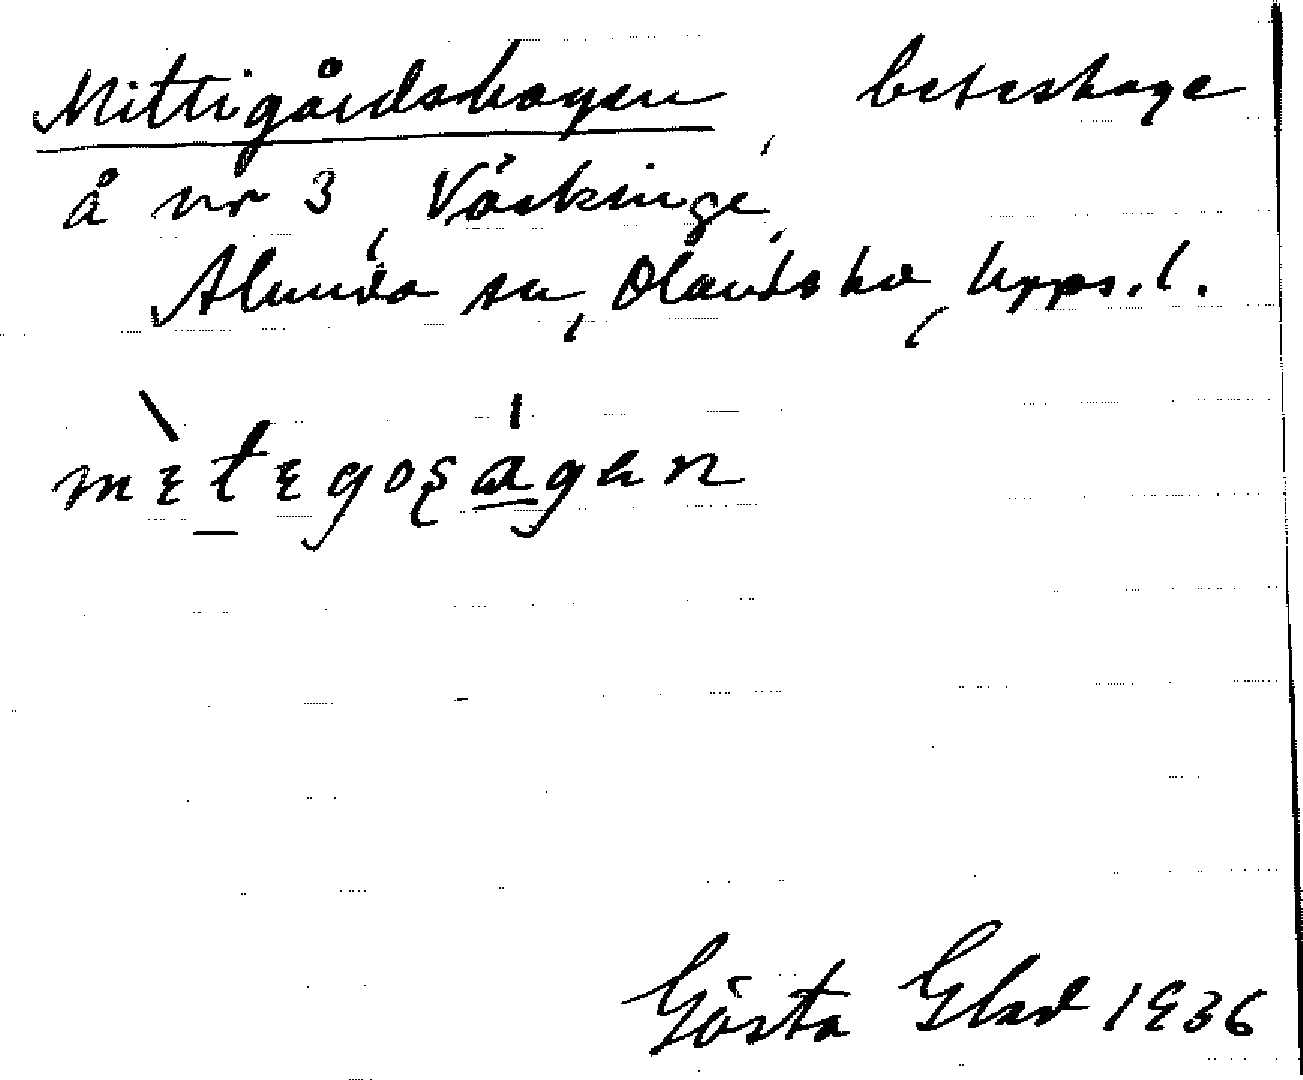 Mittigårdshagen, beteshage
å nr 3 Väskinge,
Alunda sn, Olands hd, Upps. l.
mètegoṣágen
Gösta Glad 1936